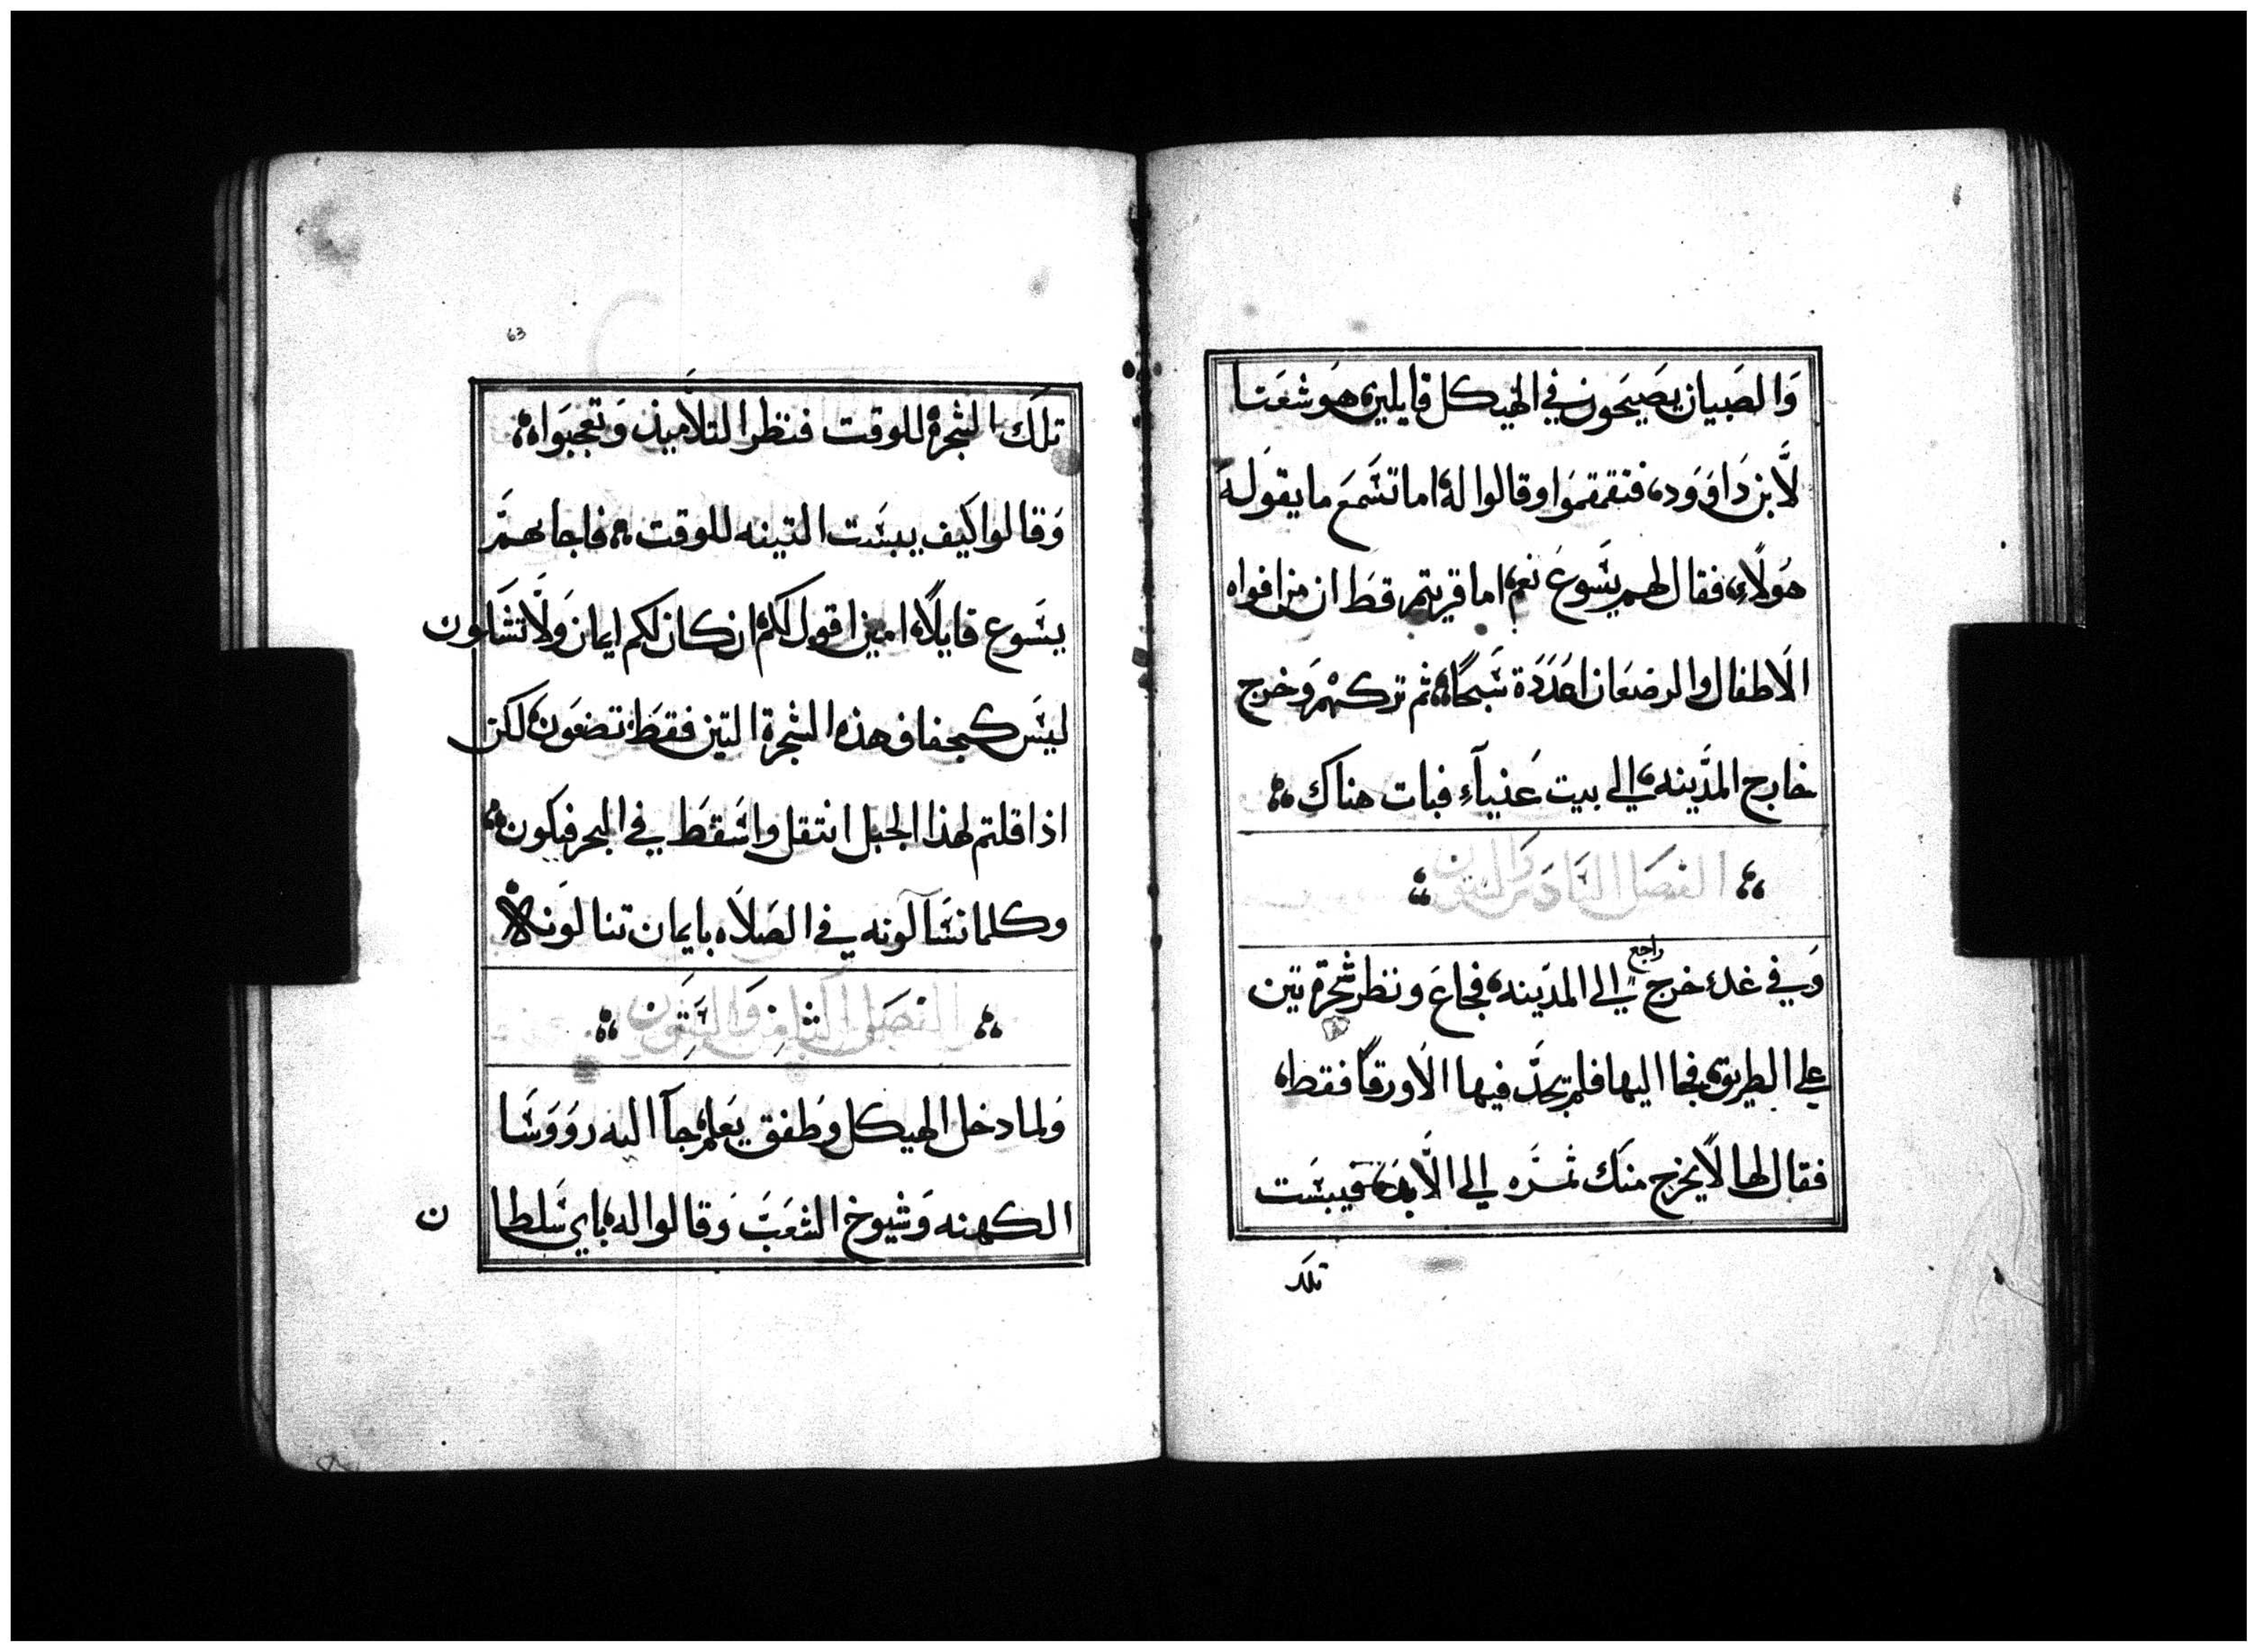 وَالصَبيان يصَيحَون في الهيكل قايلين هَوشعَنا
لَّابن دَاوَود، فتقمقموَا وقالوا له اما تسَمعَ ما يقوَله
هَولآءِ، فقال لهم يسَوعَ نعم، اما قريتم قطَ ان من افواه
الاَطفال والرضعَان اعَدَدَة سَبحًا، ثم تركهم وَخرج
خارج المدَينه، الي بيت عَنيآءِ فبات هناك
الفصَل السَادَس وَالستون
وَفي غدٍ خرج راجع الي المدَينه، فجاعَ ونظر شجرة تين
علي الطريق، فجا اليها فلم يجَد فيها الاَ ورقاً فقط،
فقال لها لاَ يخرج منك ثمَره الي الاَّبد، فيبسَت
تلك
63
تلَك الشجرة للوقت فنظر التلاَميذ وَتعَجبَوا،
وَقالوا كيَف يبسَت التينه للوقت، فاجابهم
يسَوع قايلاً، امين اقول لكم، ان كان لكم ايمان وَلاَّ تشَكون
ليسَ كجفاف هذه الشجرة التين فقطَ، تصَنعَون، لكن
اذا قلتم لهذا الجبل انتقل واسَقطَ في البحر فيكون
وكلما تسَآلونه في الصَلاَه بايمان تنالوَنه
الفصَل الثامن وَالسَتون
وَلما دخل الهيكل وَطفق يعَلم، جآ اليه روَوَسَا
الكهنه وَشيوخ الشعَبَ وَقالوا له، باي سَلطا
ن